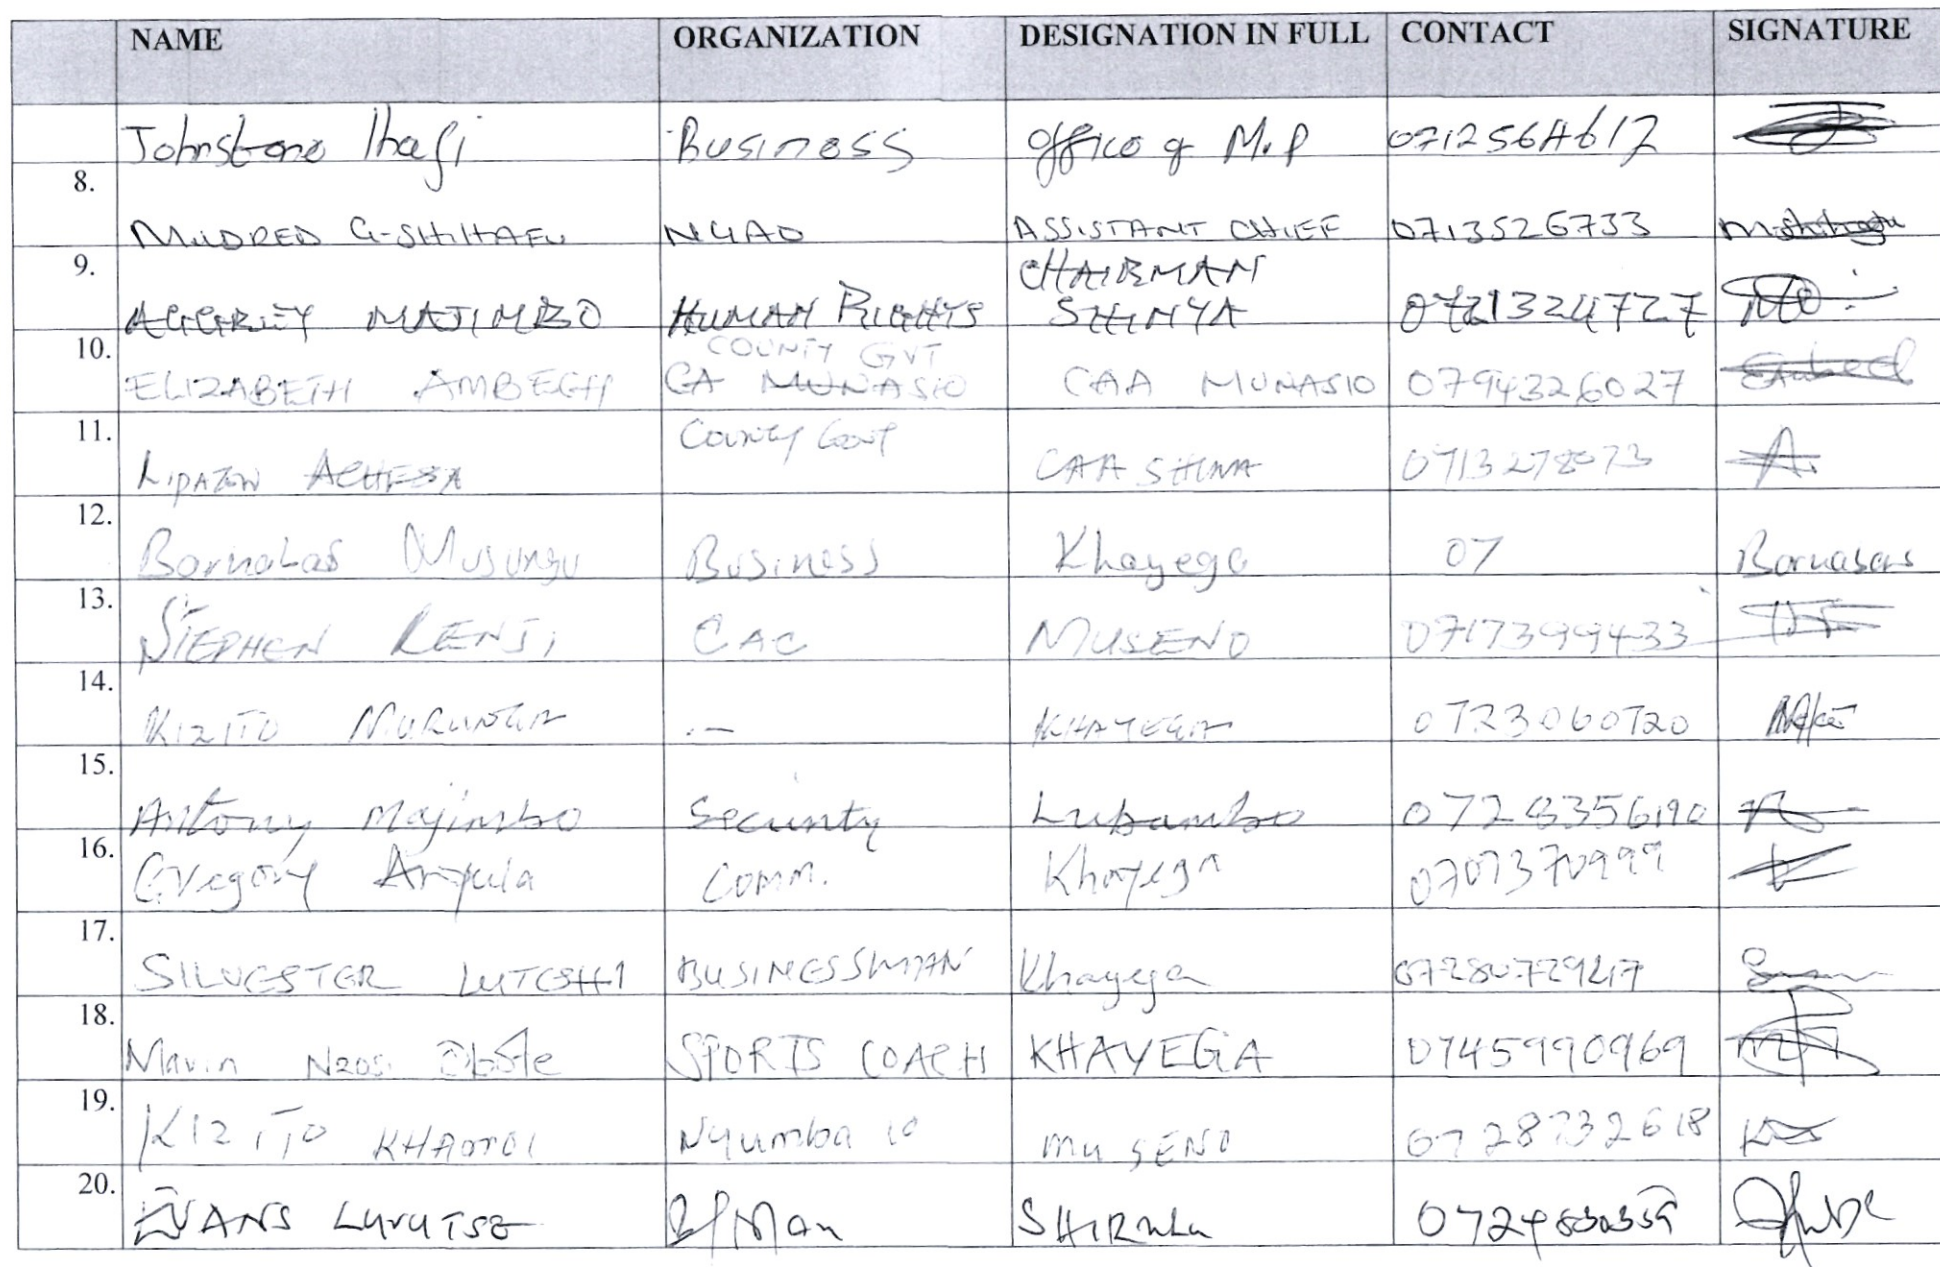 NAME ORGANIZATION DESIGNATION IN FULL CONTACT SIGNATURE
Johnstone Ihaji Business Office of M.P 0712564612
8.
MILDRED G-SHIHAFU NGAO ASSISTANT CHIEF 0713526733
9. CHAIRMAN
AGGREY MAJIMBO HUMAN RIGHTS SHINYA 0721324727
10. COUNTY GVT
ELIZABETH AMBEGH CA MUNASIO CAA MUNASIO 0794326027
11. County Govt
ACHESA CAA 0713278073
12.
Barnabas Musungu Business Khayega 07 Barnabas
13.
STEPHEN CAC MUSENO 0717399433
14.
KIZITO MURUNGA .- KHAYEGA 0723060720
15.
Antony Majimbo Security Lubambo 0728356190
16.
Gregory Angula Comm. Khayega 0707370999
17.
SILVESTER LUTESHI BUSINESSMAN Khayega 0728072947
18.
Mavin Nzosi SPORTS COACH KHAYEGA 0745990969
19.
KIZITO Nyumba 10 MUSENO 0728732618
20.
EVANS B/Man